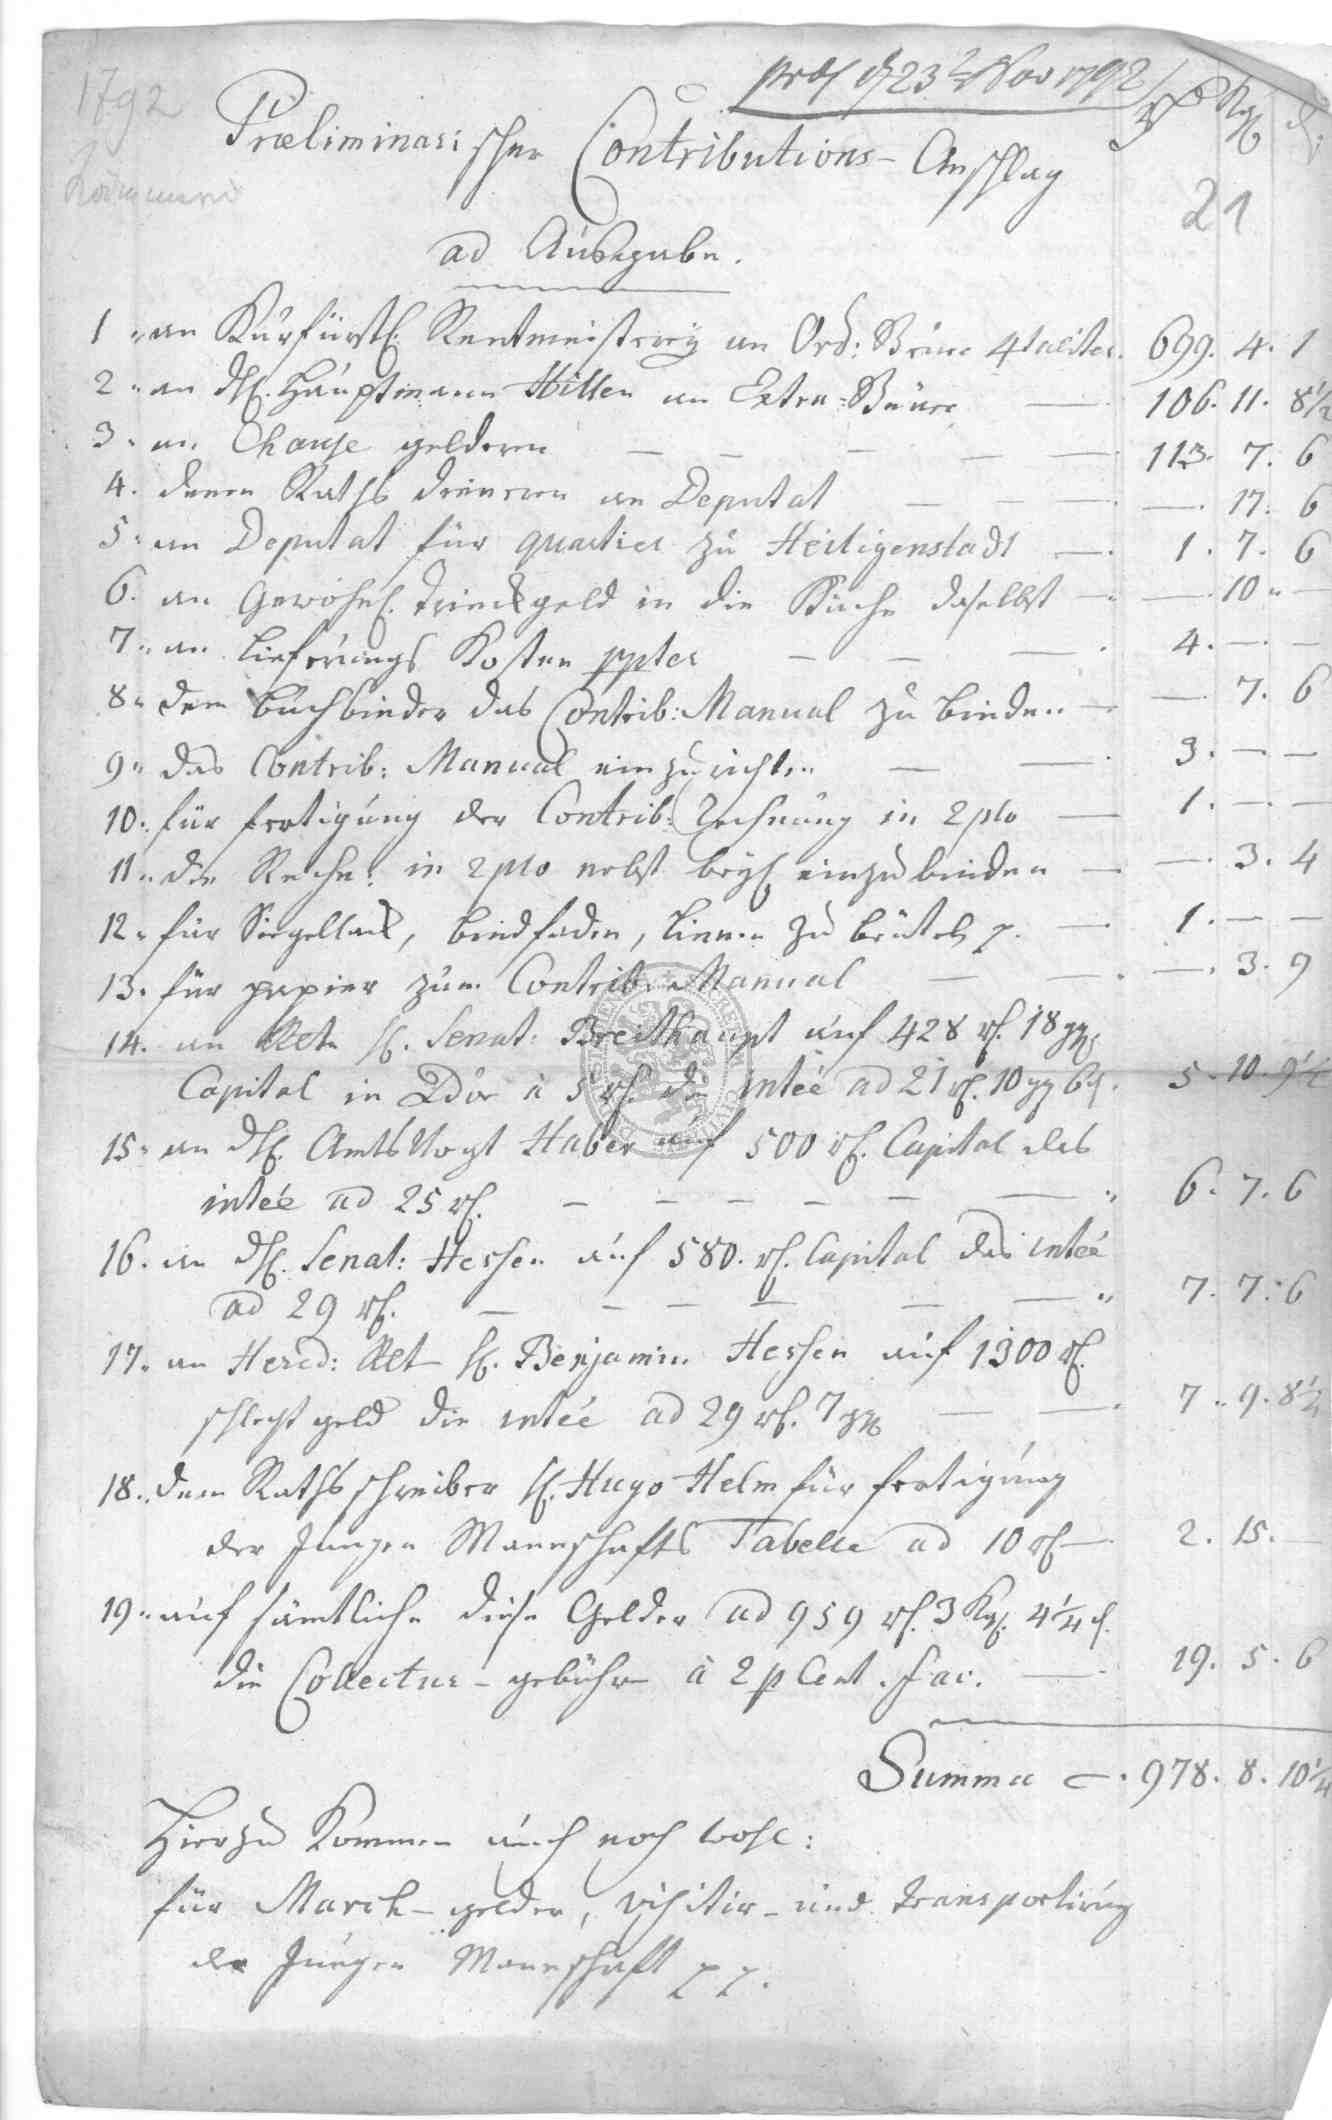 1792
præs d 23t Nov 1792
Rthlr Kgr d
Præliminarischer Contributions-Anschlag
21
ad Ausgabe.
1. an Kurfürstl. Rentmeisterey an Ord: Steuer 4taliter. 699. 4. 1
2. an H. Hauptmann Hillen an Extra-Steuer — 106. 11. 8½
3. an Chausse geldern — — — — — 113. 7. 6
4. denen Raths dienern an Deputat — — — —. 17. 6
5. an Deputat für quartier zu Heiligenstadt —. 1. 7. 6
6. an Gewöhnl. Trinckgeld in die Küche daselbst — —. 10 —
7. an Lieferungs Kosten ppter — — — 4. — —
8. dem Buchbinder das Contrib: Manual zu binden — —. 7. 6
9. das Contrib: Manual einzurichten — — 3. — —
10. für fertigung der Contrib: Rechnung in 2plo — 1. — —
11. die Rechn: in 2plo nebst beyl. einzubinden — —. 3. 4
12. für Siegellack, bindfaden, Linnen zu beutel p. — 1. — —
13. für papier zum Contrib: Manual — — —. 3. 9
14. an H. Senat: Breithaupt auf 428 rl. 18 ggr
Capital in Ldor à 5 rl. die inteé ad 21 rl. 10 gg 6 d. 5. 10. 9½
15. an H. Amts Vogt Haber auf 500 rl. Capital das
inteé ad 25 rl. — — — — — — 6. 7. 6
16. an H. Senat: Hessen auf 580. rl. Capital das inteé
ad 29 rl. — — — — — — 7. 7. 6
17. an Hered: H. Benjamin Hessen auf 1300 rl.
schlecht geld die inteé ad 29 rl. 7 gg — — 7. 9. 8½
18. dem Rathsschreiber H. Hugo Helm für fertigung
der Jungen Mannschafts Tabelle ad 10 rl — 2. 15. —
19. auf sämtliche diese Gelder ad 959 rl. 3 Kgr. 4¼ d.
die Collectur-gebühr à 2 p Cent. fac. — 19. 5. 6
Summa —. 978. 8. 10¼
Hierzu kommen auch noch wohl:
für March-gelder, visitir- und transportirung
der Jungen Mannschaft pp.